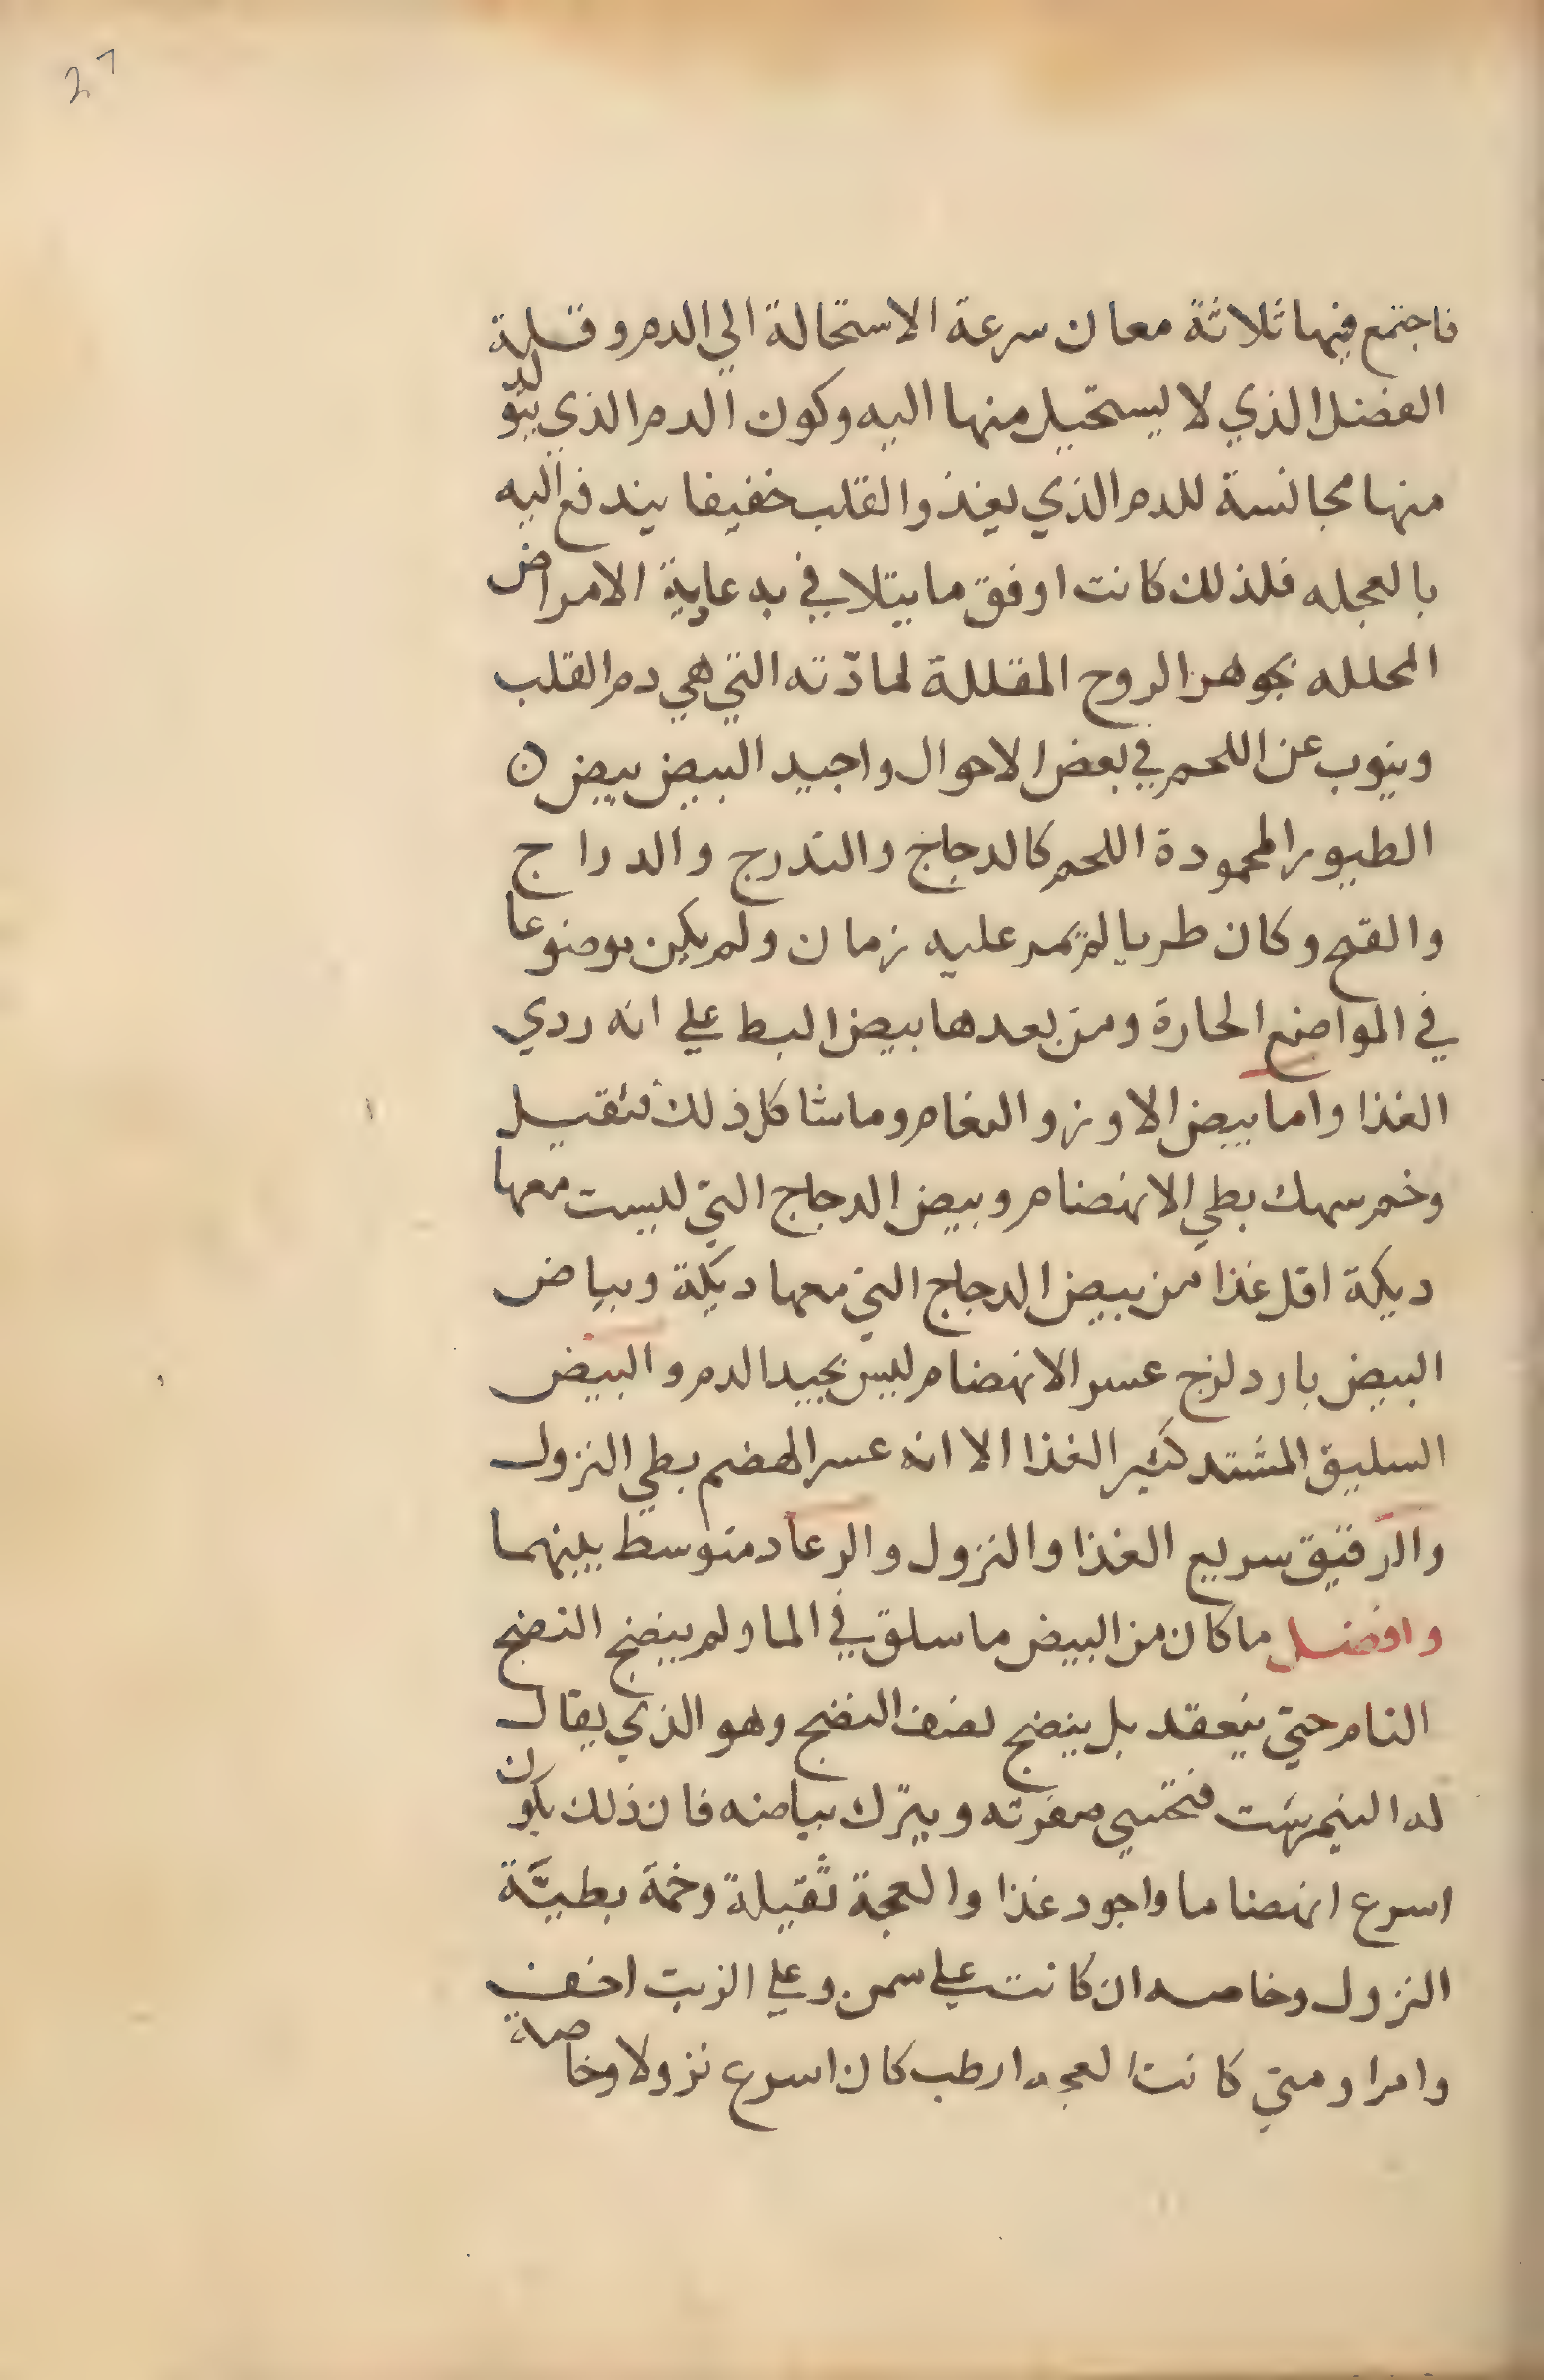 27
فاجتمع فيها ثلاثة معان سرعة الاستحالة الي الدم وقلة
الفضل الذي لا يستحيل منها اليه وكون الدم الذي يتولد
منها مجانسة للدم الذي يغذو القلب خفيفا يندفع اليه
بالعجله فلذلك كانت اوفق ما يتلافي به عادية الامراض
المحلله بجوهر الروح المقللة لمادّته التي هي دم القلب
وينوب عن اللحم في بعض الاحوال واجيد البيض بيض ن
الطيور المحمودة اللحم كالدجاج والتدرج والدراج
والقبج وكان طريا لم يمر عليه زمان ولم يكن موضوعا
في المواضع الحارة ومن بعدها بيض البط علي انه ردي
الغذا واما بيض الاوز والنعام وما شاكل ذلك فثقيل
وخم سهك بطي الانهضام وبيض الدجاج التي ليست معها
ديكة اقل غذا من بيض الدجاج التي معها ديكة وبياض
البيض بارد لزج عسر الانهضام ليس بجيد الدم والبيض
السليق المشتد كثير الغذا الا انه عسر الهضم بطي النزول
والرقيق سريع الغذا والنزول والرعاد متوسط بينهما
وافضل ما كان من البيض ما سلق في الما ولم ينضج النضج
التام حتي ينعقد بل ينضج نصف النضج وهو الذي يقال
له النيمرشت فتحتسي صفرته ويترك بياضه فان ذلك يكون
اسرع انهضاما واجود غذا والعجة ثقيلة وخمة بطيّة
النزول وخاصه ان كانت علي سمن وعلي الزيت اخف
وامرا ومتي كانت العجه ارطب كان اسرع نزولا وخاصة